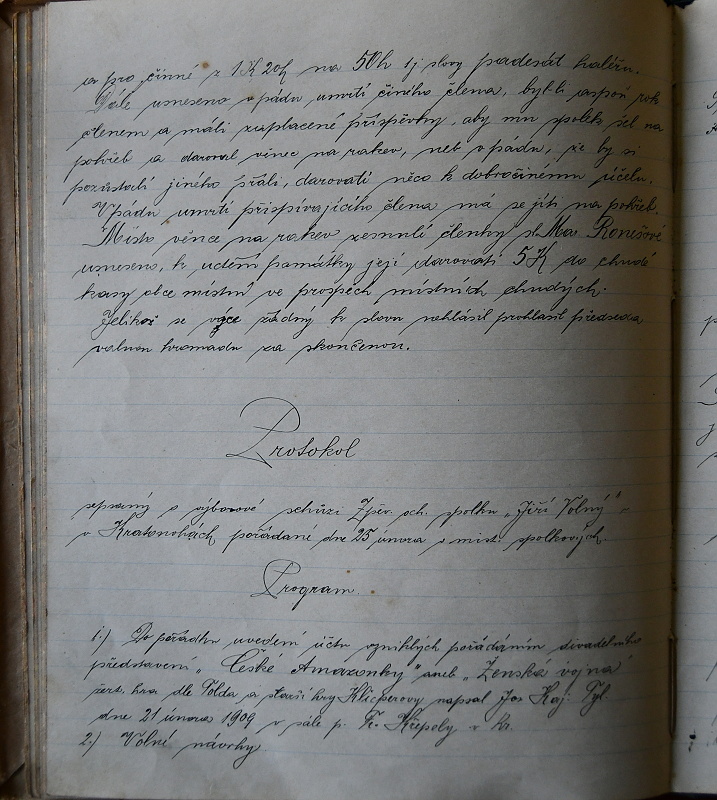 a pro činné z 1K 20h na 50h tj. slovy padesát haléřů.
Dále usneseno v pádu úmrtí činého člena, byl-li aspoň rok
členem a máli zaplacené příspěvky, aby mu spolek šel na
pohřeb a daroval věnec na rakev, neb v pádu, že by si
pozůstalí jiného přáli, darovati něco k dobročinému účelu.
V pádu úmrtí přispívajícího člena má se jíti na pohřeb.
Místo věnce na rakev zesnulé členky sl. Mar. Ronešové
usneseno, k uctění památky její darovati 5K do chudé
kasy obce místní ve prospěch místních chudých.
Jelikož se více žádný k slovu nehlásil prohlásil předseda
valnou hromadu za skončenou.
Protokol
sepsaný o výborové schůzi Zpěv. och. spolku „Jiří Volný"
v Kratonohách pořádané dne 25 února v míst. spolkových.
Program.
1.) Do pořádku uvedení účtu vzniklých pořádáním divadelního
představení „České Amazonky" aneb „Ženská vojna"
žert. hra dle Told a starší hry Klicperovy napsal Jos. Kaj. Tyl.
dne 21 února 1909 v sále p. Fr. Křepely v Kr.
2.) Volné návrhy.